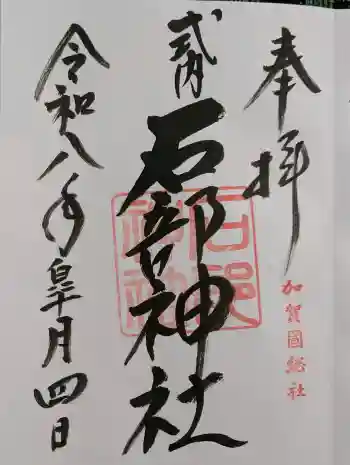 奉拝
加賀國総社
式内
石部神社
令和八年皐月四日
石部神社